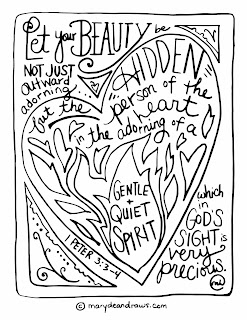 Let your BEAUTY be
NOT JUST
outward
adorning...
but the
HIDDEN
person of the
heart
in the adorning of a
GENTLE
+
QUIET
SPIRIT
which
in
GOD'S
SIGHT is
very
precious.
I PETER 3:3-4
md
© marydeandraws.com